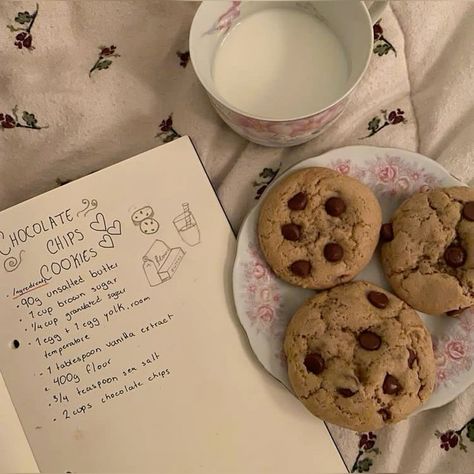 CHOCOLATE
CHIPS
COOKIES
Ingredients
90g unsalted butter
1 cup brown sugar
1/4 cup granulated sugar
1 egg + 1 egg yolk, room
temperature
1 tablespoon vanilla extract
400g floor
3/4 teaspoon sea salt
2 cups chocolate chips